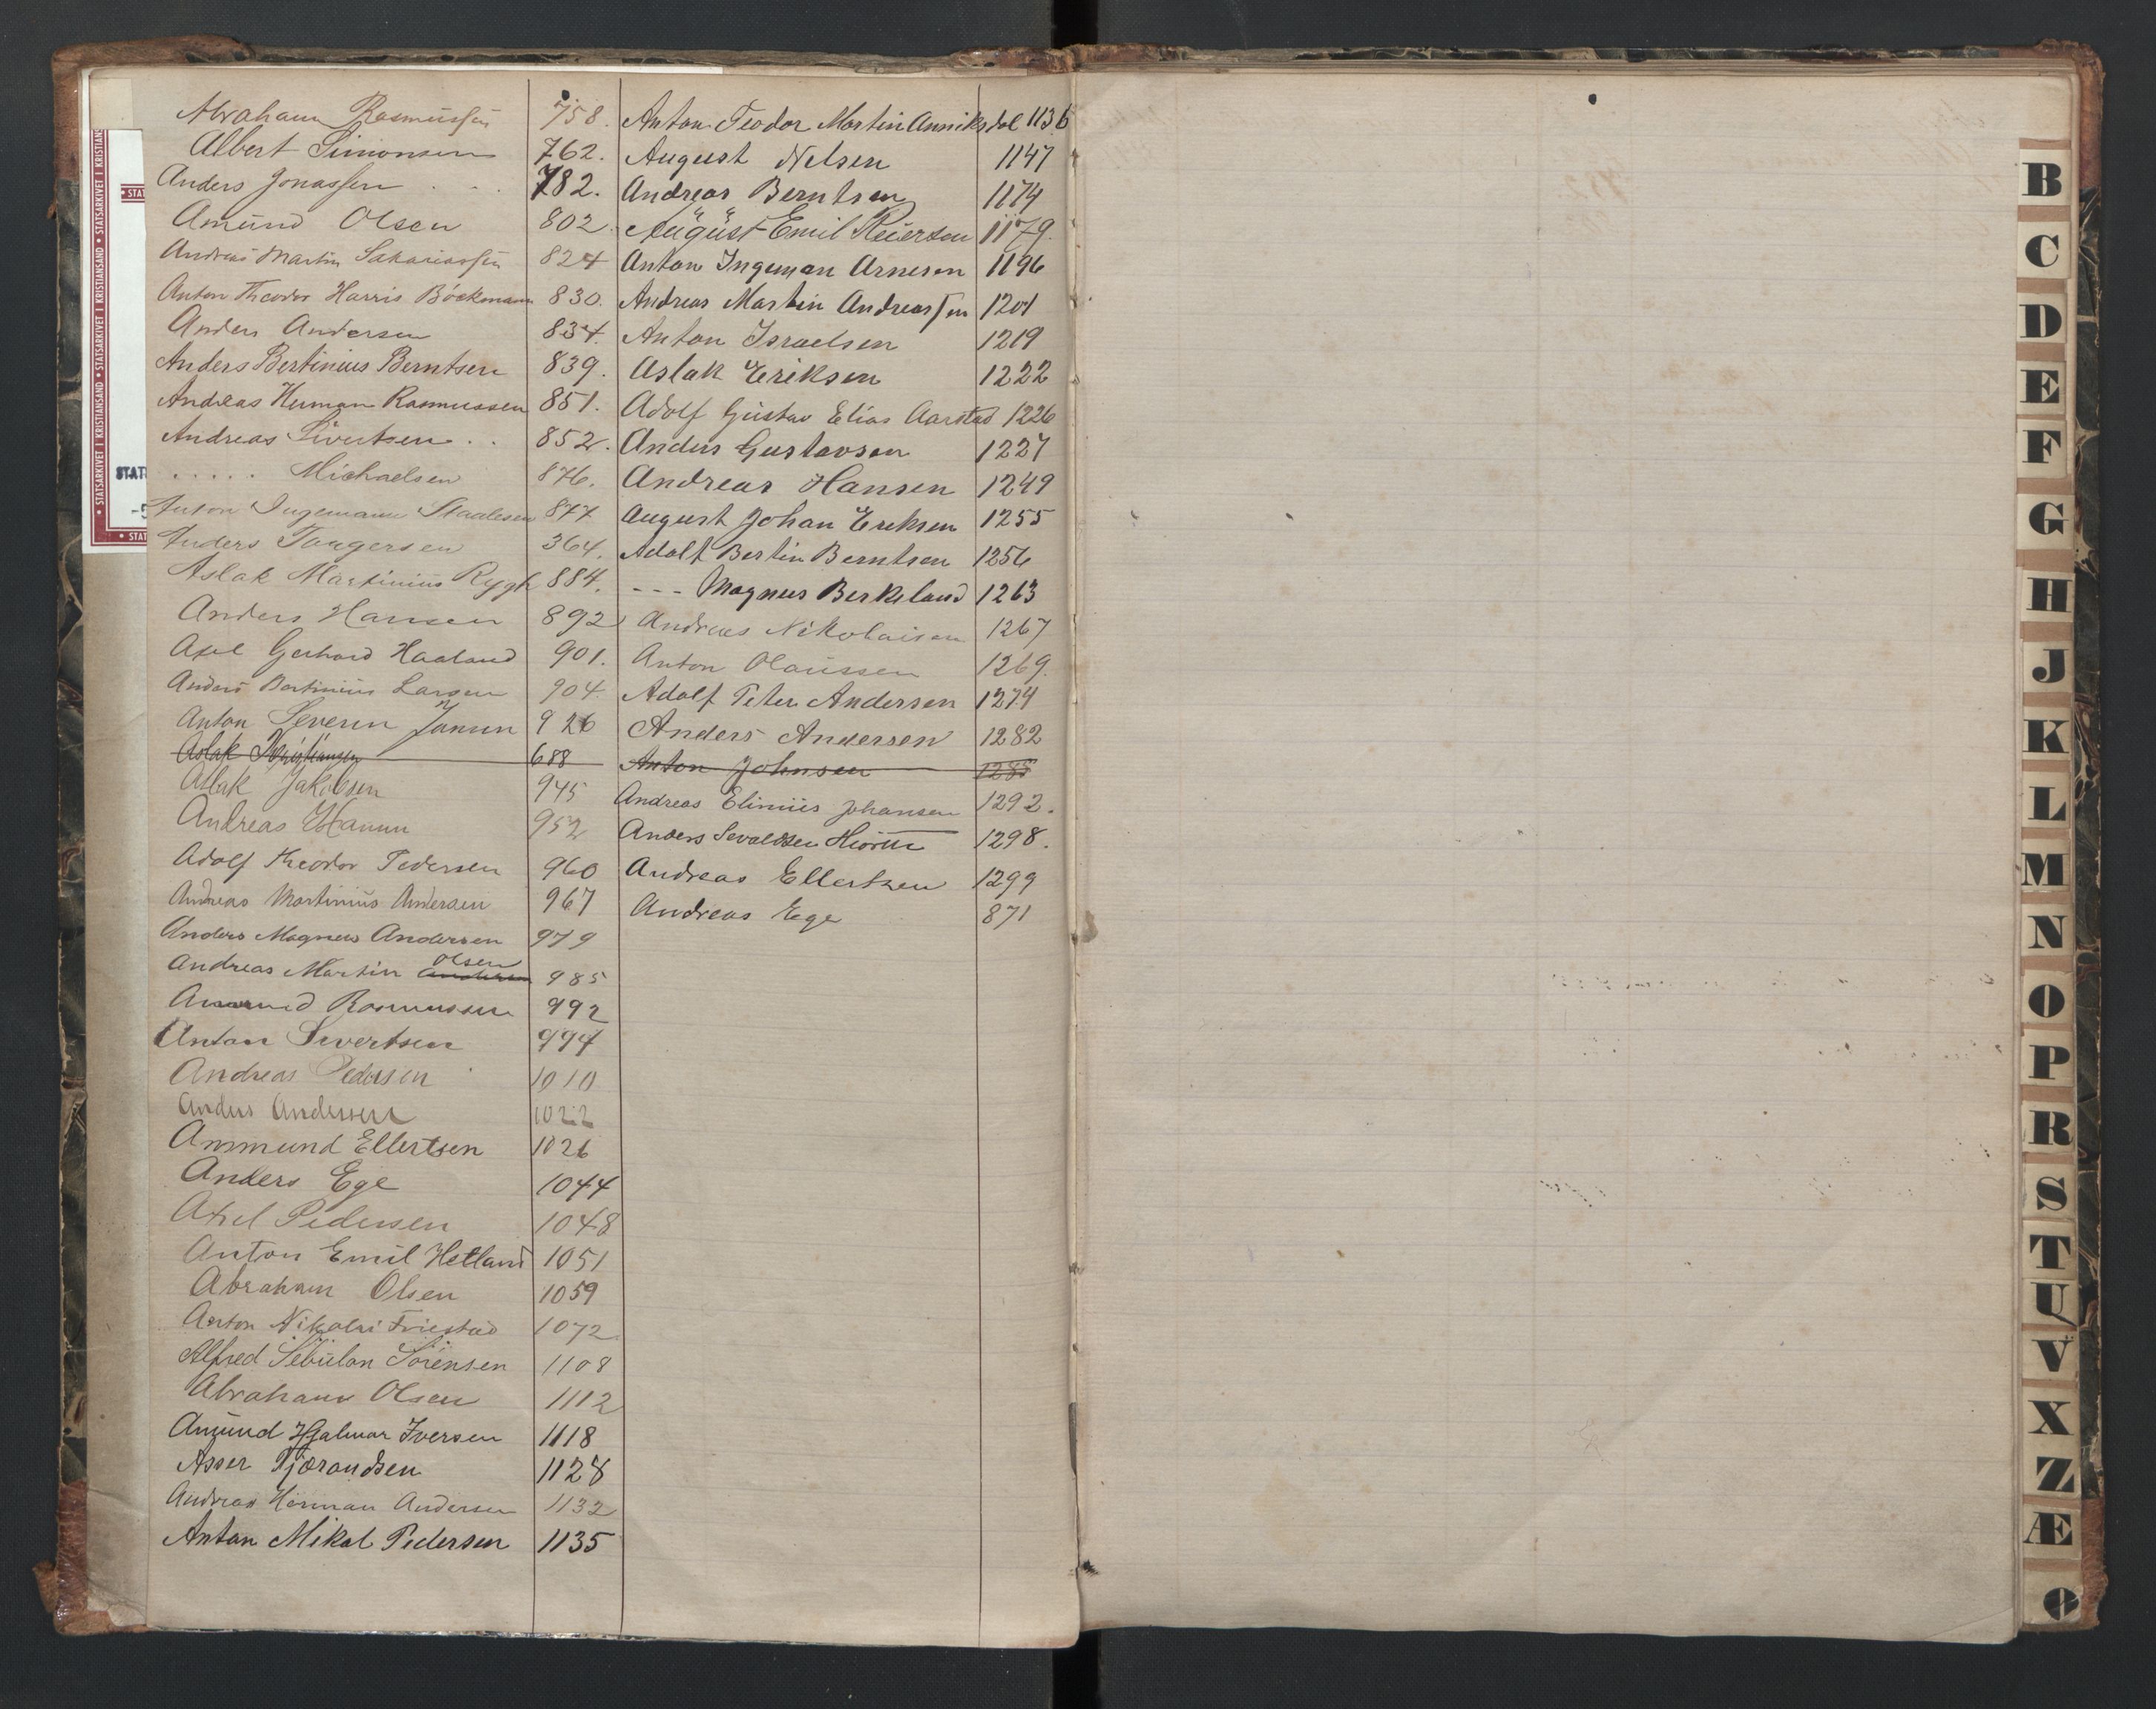 Abraham Rasmussen 758.
Albert Simonsen 762.
Anders Jonassen . . . 782.
Amund Olsen 802.
Andreas Martin Sakariassen 824
Anton Theodor Harris Böckmann 830.
Anders Andersen 834.
Anders Bertinius Berntsen 839.
Andreas Herman Rasmussen 851.
Andreas Sivertsen . . 852.
. . . . . Michaelsen 876.
Anton Ingemann Staalesen 877
Anders Taagersen 364.
Aslak Martinius Rygh 884.
Anders Hansen 892
Axel Gerhard Haaland 901.
Anders Bertinius Larsen 904.
Anton Severin Jansen 926
Aslak Kristiansen 688
Aslak Jakobsen 945
Andreas Hansen 952
Adolf Theodor Pedersen 960
Andreas Martinius Andersen 967
Anders Magnus Andersen 979
Olsen
Andreas Martin Andersen 985
Amund Rasmussen 992
Anton Sivertsen 994
Andreas Pedersen 1010
Anders Andersen 1022
Ammund Ellertsen 1026
Anders Ege 1044
Axel Pedersen 1048
Anton Emil Hetland 1051
Abraham Olsen 1059
Anton Nikolai Friestad 1072
Alfred Sebulon Sörensen 1108
Abraham Olsen 1112
Amund Hjalmar Iversen 1118
Asser Tjorandsen 1128
Andreas Herman Andersen 1132
Anton Mikal Pedersen 1135
Anton Teodor Martin Anniksdal 1136
August Nelsen 1147
Andreas Berntsen 1174
August Emil Reiersen 1179.
Anton Ingeman Arnesen 1196
Andreas Martin Andreassen 1201
Anton Israelsen 1219
Aslak Eriksen 1222
Adolf Gustav Elias Aarstad 1226
Anders Gustavsen 1227
Andreas Hansen 1249
August Johan Eriksen 1255
Adolf Bertin Berntsen 1256
- - - Magnus Berkeland 1263
Andreas Nikolaisen 1267
Anton Olaussen 1269.
Adolf Peter Andersen 1274
Anders Andersen 1282
Anton Johnsen 1285
Andreas Elinius Johansen 1292.
Anders Sevaldsen 1298.
Andreas Ellertsen 1299
Andreas Ege 871
B
C
D
E
F
G
H
J
K
L
M
N
O
P
R
S
T
U
V
X
Z
Æ
Ø
• STATSARKIVET I KRISTIANSAND • STATSARKIVET I KRISTIANSAND • STATSARKIVET I KRISTIANS